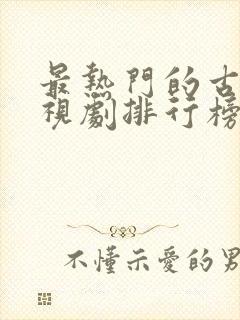 最熱門的古
視劇排行榜
不懂示愛的男